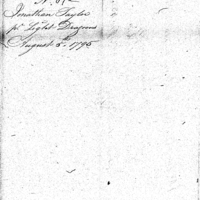 Jonathan Taylor
pr Light Dragoons
August 5th 1795